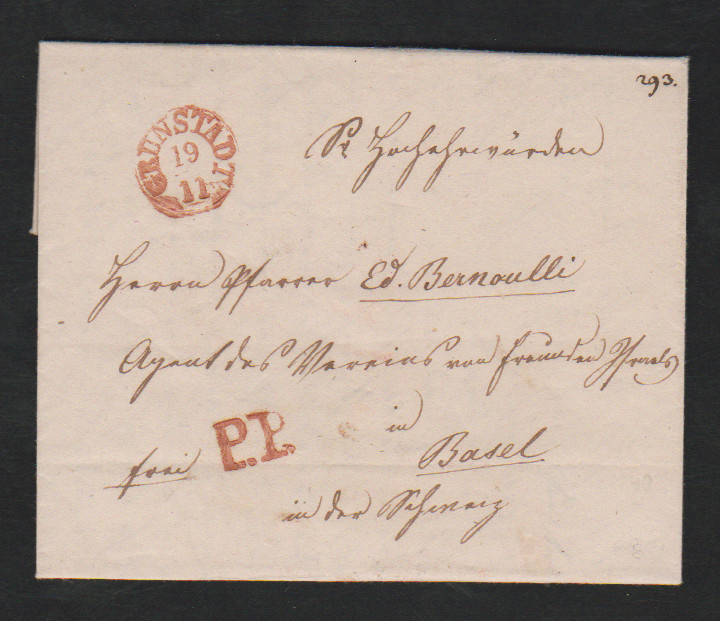 293.
GRÜNSTADT
19
11
Sr Hochehrwürden
Herrn Pfarrer Ed. Bernoulli
Agent des Vereins von Freunden Israels
in
frei P.P. Basel
in der Schweiz